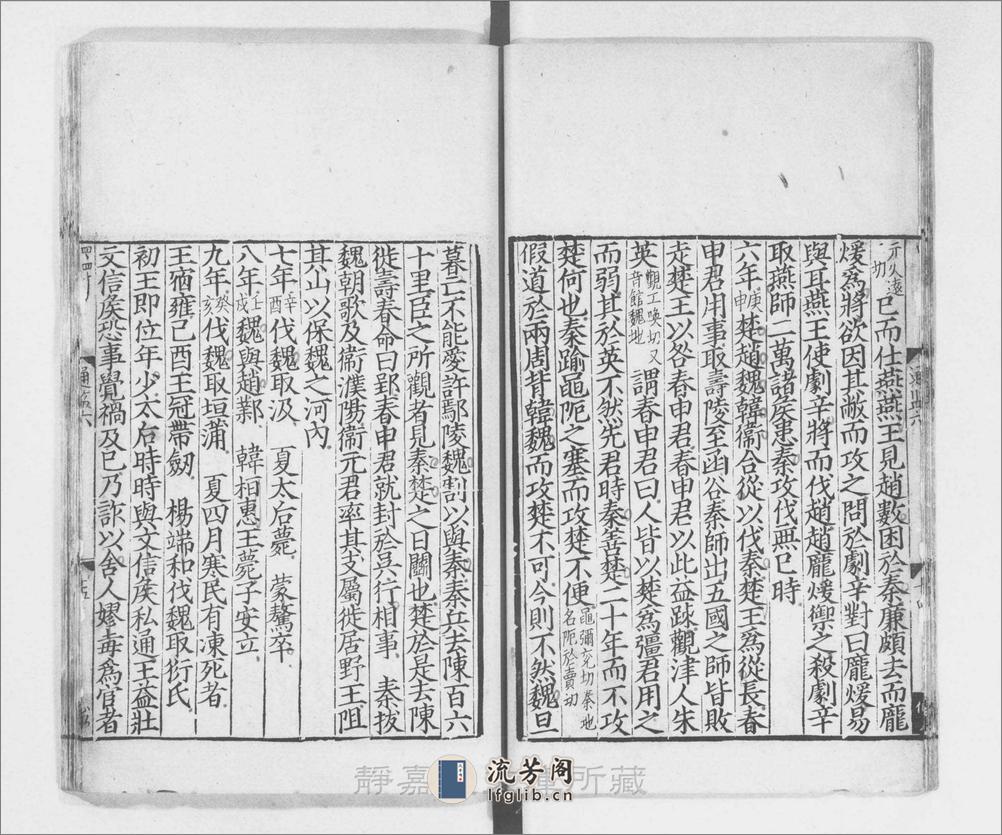 于久遠切已而仕燕燕王見趙數困於秦廉頗去而龐
煖爲將欲因其敝而攻之問於劇辛對曰龐煖易
與耳燕王使劇辛將而伐趙趙龐煖禦之殺劇辛
取燕師二萬諸侯患秦攻伐無已時
六年庚申楚趙魏韓衞合從以伐秦楚王爲從長春
申君用事取壽陵至函谷秦師出五國之師皆敗
走楚王以咎春申君春申君以此益踈觀津人朱
英觀工喚切又音館魏地謂春申君曰人皆以楚爲彊君用之
而弱其於英不然先君時秦善楚二十年而不攻
楚何也秦踰黽阨之塞而攻楚不便黽彌兖切秦地名阨於賣切
假道於兩周背韓魏而攻楚不可今則不然魏旦
暮亡不能愛許鄢陵魏割以與秦秦兵去陳百六
十里臣之所觀者見秦楚之日鬭也楚於是去陳
徙壽春命曰郢春申君就封於吳行相事 秦拔
魏朝歌及衞濮陽衞元君率其支屬徙居野王阻
其山以保魏之河內
七年辛酉伐魏取汲 夏太后薨 蒙驁卒
八年壬戌魏與趙鄴 韓桓惠王薨子安立
九年癸亥伐魏取垣蒲 夏四月寒民有凍死者
王宿雍己酉王冠帶劒 楊端和伐魏取衍氏
初王即位年少太后時時與文信侯私通王益壯
文信侯恐事覺禍及己乃詐以舍人嫪毐爲宦者
通監六
靜嘉堂文庫所藏
流芳阁
lfglib.cn